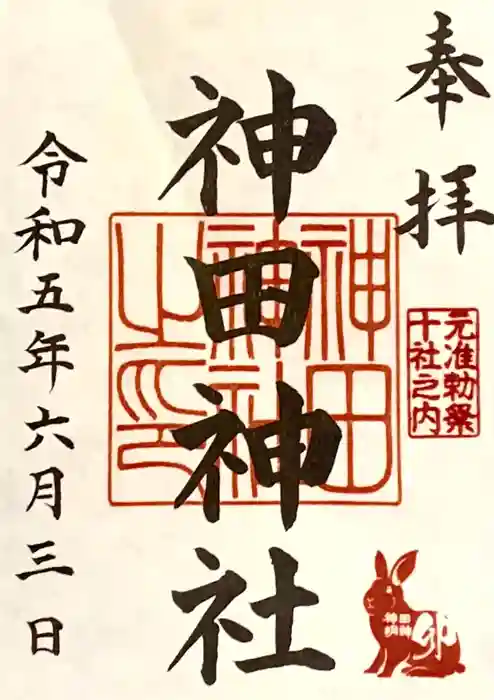 奉拝
元准勅祭
十社之内
神田神社
神田
神社
之印
令和五年六月三日
卯